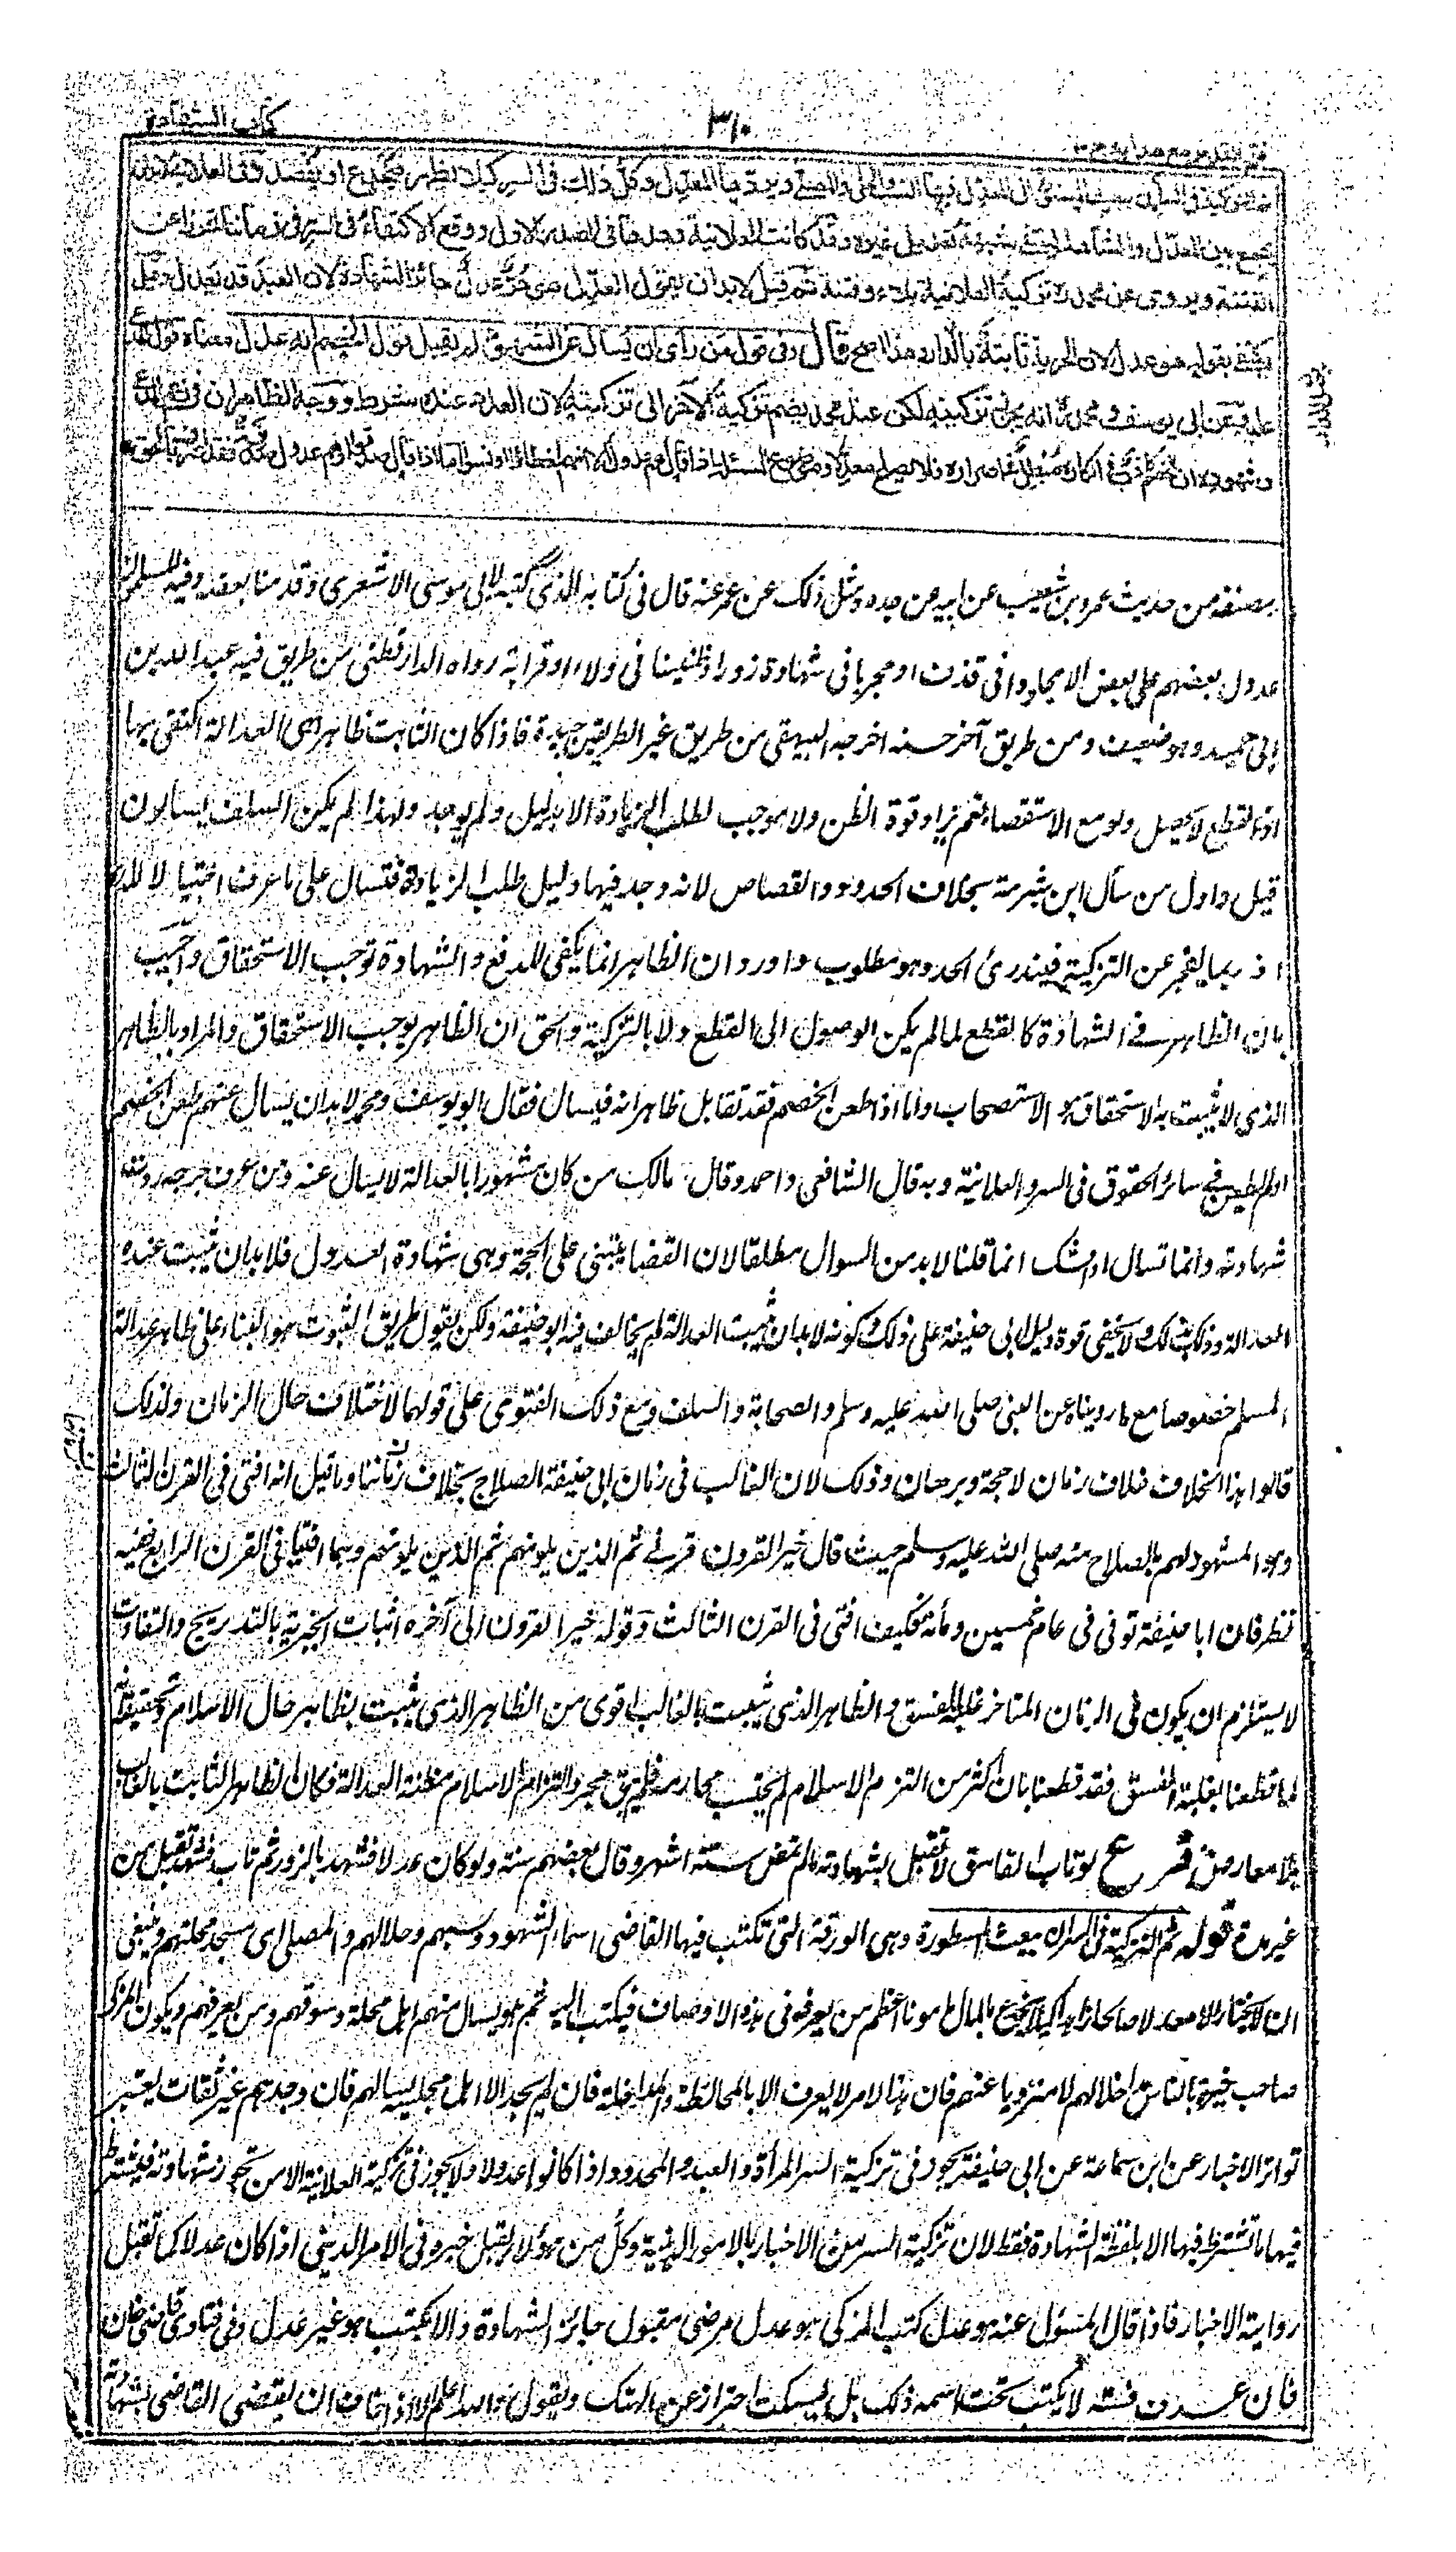 کتاب الشهادة
۳۱۰
فتح القدير مع هدايه ج ۳
ثم التزكية في السر ان يبعث المستورة الى المعدل فيها النسب والحلى والمصلى ويردها المعدل وكل ذلك في السر كيلا يظهر فيخدع او يقصد وفى العلانية لابد ان
يجمع بين المعدل والشاهد لتنتفى شبهة تعديل غيره وقد كانت العلانية وحدها فى الصدر الاول ووقع الاكتفاء فى السر فى زماننا تحرزا عن
الفتنة ويروى عن محمد رح تزكية العلانية بلاء وفتنة ثم قيل لابد ان يقول المعدل هو حر عدل جائز الشهادة لان العبد قد يعدل وقيل
يكتفى بقوله هو عدل لان الحرية ثابتة بالدار وهذا اصح قال وفى قول من رأى ان يسأل عن الشهود لم يقبل قول الخصم انه عدل معناه قول المدعى
عليه وعن ابى يوسف ومحمد رح انه يجوز تزكيته لكن عند محمد يضم تزكية الآخر الى تزكيته لان العدد عنده شرط ووجه الظاهر ان فى زعم المدعى
وشهوده ان الخصم كاذب فى انكاره مبطل فى اصراره فلا يصلح معدلا وموضوع المسئلة اذا قال هم عدول الا انهم اخطاؤا او نسوا اما اذا قال صدقوا او هم عدول صدقة فقد اعترف بالحق
مصنفه من حديث عمرو بن شعيب عن ابيه عن جده ومثل ذلك عن عمر عنه قال فى كتابه الذى كتبه الى ابى موسى الاشعرى وقدمنا بعضه وفيه المسلمون
عدول بعضهم على بعض الا مجلودا فى قذف او مجربا فى شهادة زور او ظنينا فى ولاء او قرابة رواه الدارقطنى من طريق فيه عبد الله بن
ابى حميد وهو ضعيف ومن طريق آخر حسنه اخرجه البيهقى من طريق غير الطريقين جيدة فاذا كان الثابت ظاهرا هى العدالة اكتفى بها
اذ القطع لا يحصل ولو مع الاستقصاء نعم يزاد قوة الظن ولا موجب لطلب الزيادة الا بدليل ولم يوجد ولهذا لم يكن السلف يسألون
قيل واول من سأل ابن شبرمة بخلاف الحدود والقصاص لانه وجد فيها دليل طلب الزيادة فتسال على ما عرف احتيالا للدرء
اذ ربما يفجر عن التزكية فيندرئ الحد وهو مطلوب واورد ان الظاهر انما يكفى للدفع والشهادة توجب الاستحقاق واجيب
بان الظاهر فى الشهادة كالقطع لما لم يكن الوصول الى القطع ولا بالتزكية والحق ان الظاهر يوجب الاستحقاق والمراد بالظاهر
الذى لا يثبت به الاستحقاق هو الاستصحاب واما اذا طعن الخصم فقد تقابل ظاهران فيسال فقال ابو يوسف ومحمد لابد ان يسال عنهم طعن الخصم
اولم يطعن فى سائر الحقوق فى السر والعلانية وبه قال الشافعى واحمد وقال مالك من كان مشهورا بالعدالة لا يسال عنه ومن عرف جرحه ردت
شهادته وانما تسال اذا شك انما قلنا لابد من السوال مطلقا لان القضا ينبنى على الحجة وهى شهادة العدول فلابد ان يثبت عنده
العدالة وذلك بذلك ولا يخفى قوة دليل ابى حنيفة على ذلك وكونه لابد ان يثبت العدالة لم يخالف فيه ابو حنيفة ولكن يقول طريق الثبوت هو البناء على ظاهر عدالة
المسلم خصوصا مع ما رويناه عن النبى صلى الله عليه وسلم والصحابة والسلف ومع ذلك الفتوى على قولهما لاختلاف حال الزمان ولذلك
قالوا هذا الخلاف خلاف زمان لا حجة وبرهان وذلك لان الغالب فى زمان ابى حنيفة الصلاح بخلاف زماننا وما قيل انه افتى فى القرن الثالث
وهو المشهود لهم بالصلاح منه صلى الله عليه وسلم حيث قال خير القرون قرنى ثم الذين يلونهم ثم الذين يلونهم وهما افتيا فى القرن الرابع ففيه
نظر فان ابا حنيفة توفى فى عام خمسين ومأته فكيف افتى فى القرن الثالث وقوله خير القرون الى آخره اثبات الخيرية بالتدريج والتفاوت
لا يستلزم ان يكون فى الزمان المتاخر غلبة الفسق والظاهر الذى يثبت بالغالب اقوى من الظاهر الذى يثبت بظاهر حال الاسلام وتحقيقه انه
لما قطعنا بغلبة الفسق فقد قطعنا بان اكثر من التزم الاسلام لم يجتنب محارمه فلم يبق مجرد التزام الاسلام مظنة العدالة فكان الظاهر الثابت بالغالب
بلا معارض فرع لو تاب الفاسق لا تقبل شهادته ما لم تمض ستة اشهر وقال بعضهم سنة ولو كان عدلا فشهد بالزور ثم تاب فشهد تقبل من
غير مدة قوله ثم التزكية فى السر ان يبعث المسطورة وهى الورقة التى تكتب فيها القاضى اسماء الشهود ونسبهم وحلالهم والمصلى اى مسجد محلتهم وينبغى
ان لا يختار الا معدلا صالحا زاهدا كيلا يخدع بالمال مامونا اعظم من يعرفه فى هذه الاوصاف فيكتب اليه ثم هو يسال منهم اهل محلة وسوقهم ومن يعرفهم ويكون المزكى
صاحب خبرة بالناس مداخلا لهم لا منزويا عنهم فان هذا الامر لا يعرف الا بالمخالطة والمداخلة فان لم يجد الا اهل مجلسه يسالهم فان وجدهم غير ثقات يعتبر
تواتر الاخبار عن ابن سماعة عن ابى حنيفة يجوز فى تزكية السر المرأة والعبد والمحدود اذا كانوا عدولا ولا يجوز فى تزكية العلانية الا من تجوز شهادته فيشترط
فيها ما تشترط فيها الا بلفظة الشهادة فقط لان تزكية السر من الاخبار بالامور الدينية وكل من هؤلاء تقبل خبره فى الامر الدينى اذا كان عدلا كما تقبل
رواية الاخبار فاذا قال المسؤل عنه هو عدل كتب المزكى هو عدل مرضى مقبول جائز الشهادة والا يكتب هو غير عدل وفى فتاوى قاضى خان
فان عرف فسقه لا يكتب تحت اسمه ذلك بل يسكت احتراز عن الهتك ويقول والله اعلم الا اذا خاف ان يقضى القاضى بشهادته